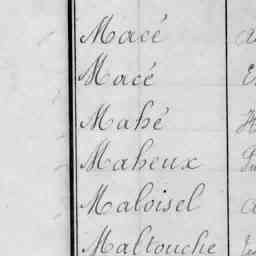 Macé
Macé
Mahé
Maheux
Maloisel
Maltouche